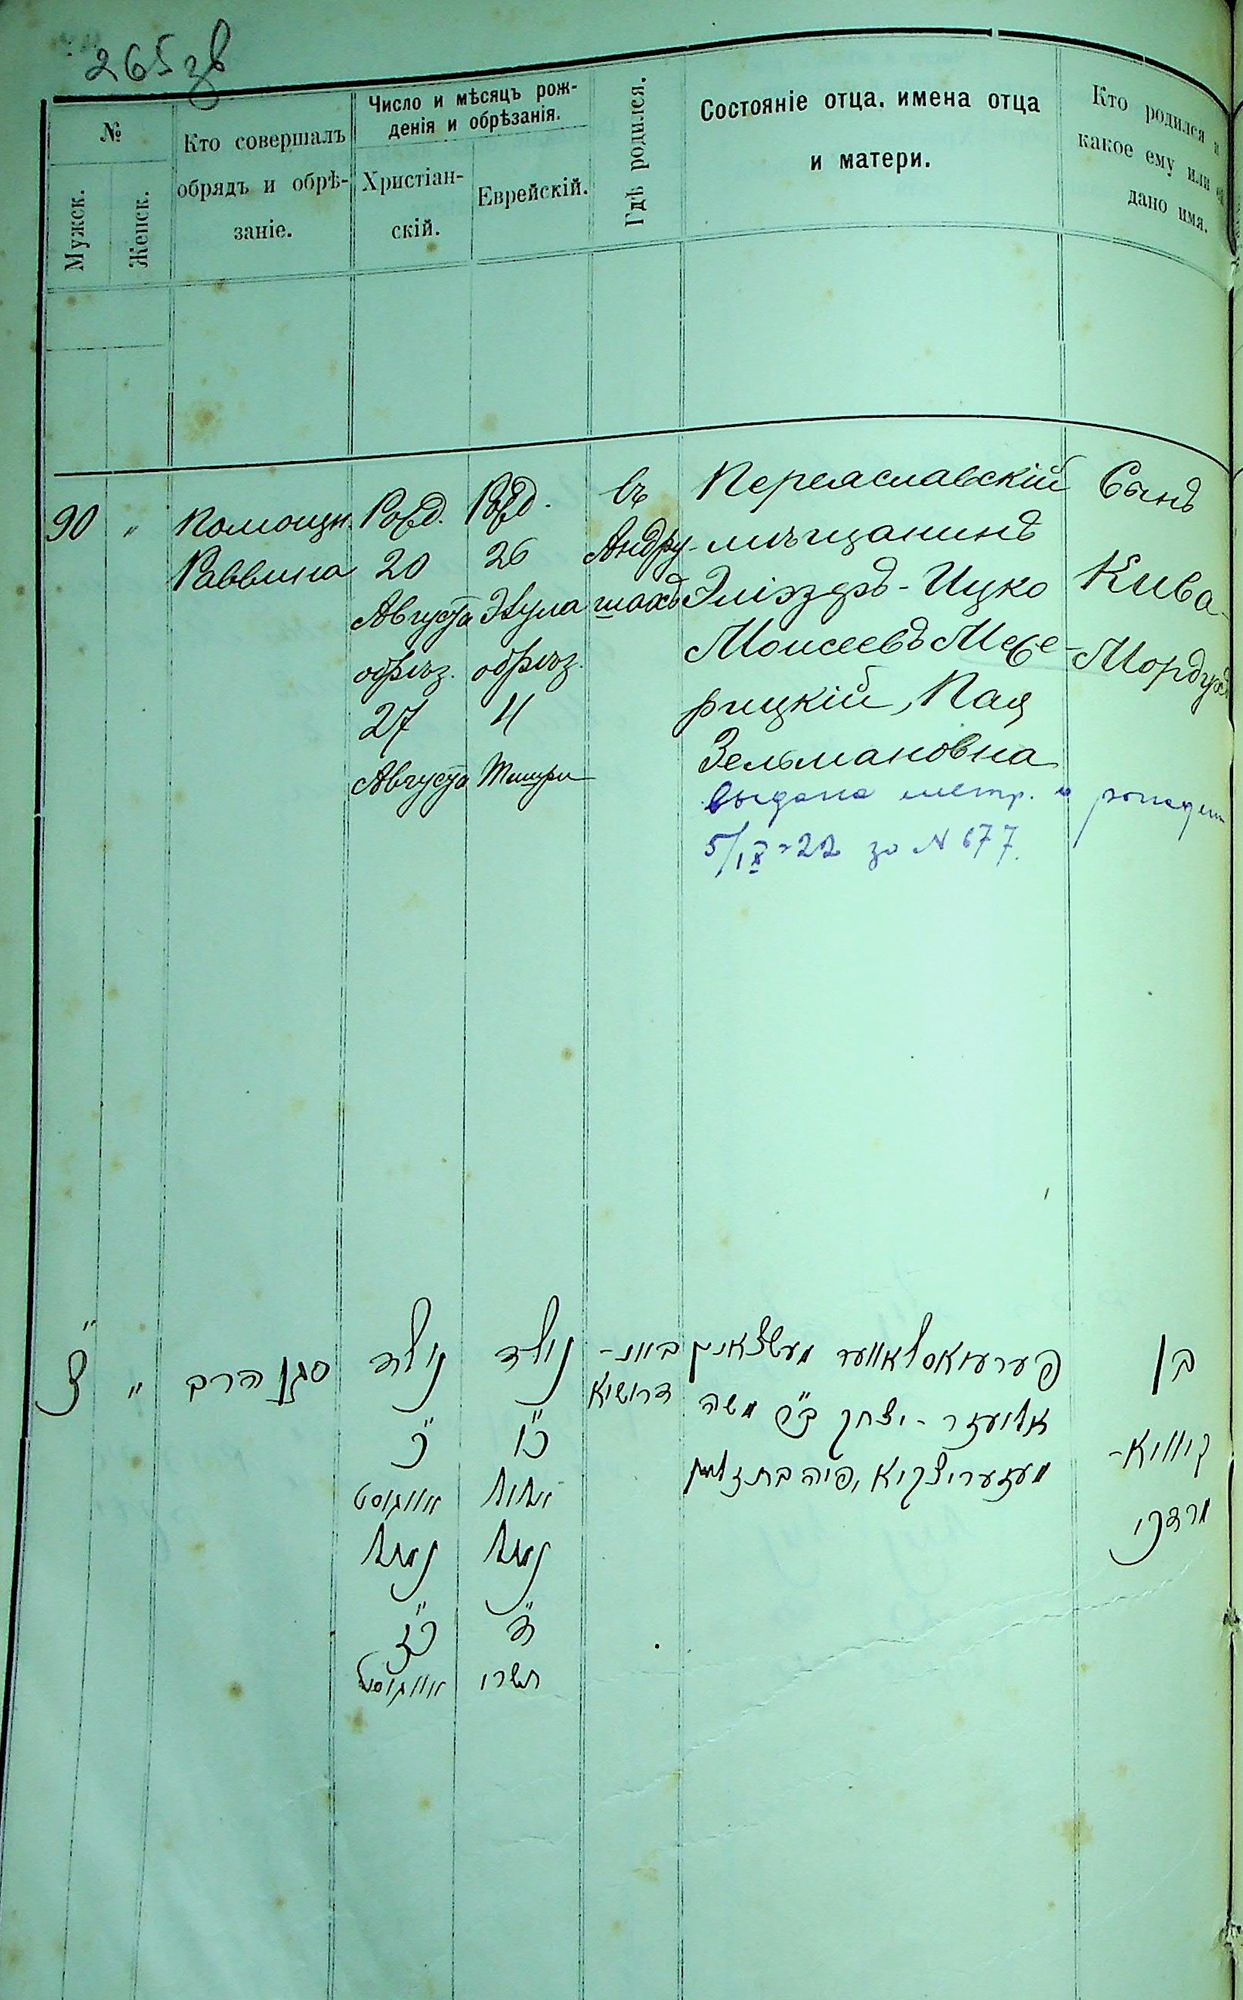 265 зв
№
Мужск.
Женск.
Кто совершалъ
обрядъ и обрѣ-
заніе.
Число и мѣсяцъ рож-
денія и обрѣзанія.
Христіан-
скій.
Еврейскій.
Гдѣ родился.
Состояніе отца, имена отца
и матери.
Кто родился и
какое ему или ей
дано имя.
90
"
Помощн.
Раввина
Рожд.
20
Августа
обрѣз.
27
Августа
Рожд.
26
Элула
обрѣз.
4
Тишри
въ
Андру-
шахъ
Переяславскій
мѣщанинъ
Эліэзеръ-Ицко
Моисеевъ Меже-
рицкій, Пая
Зельмановна
выдана метр. о рожден
5/IX-22 за № 677.
Сынъ
Кива-
Мордухъ
צ"
"
סגן הרב
נולד
כ"
אווגוסט
נמול
כ"ז
אווגוסט
נולד
כ"ו
אלול
נמול
ד"
תשרי
פערעיאסלאווער מעשצאנין
אליעזר - יצחק ב"ר משה
מעזעריצקיא, פיה בת
בן
קיווא-
מרדכי